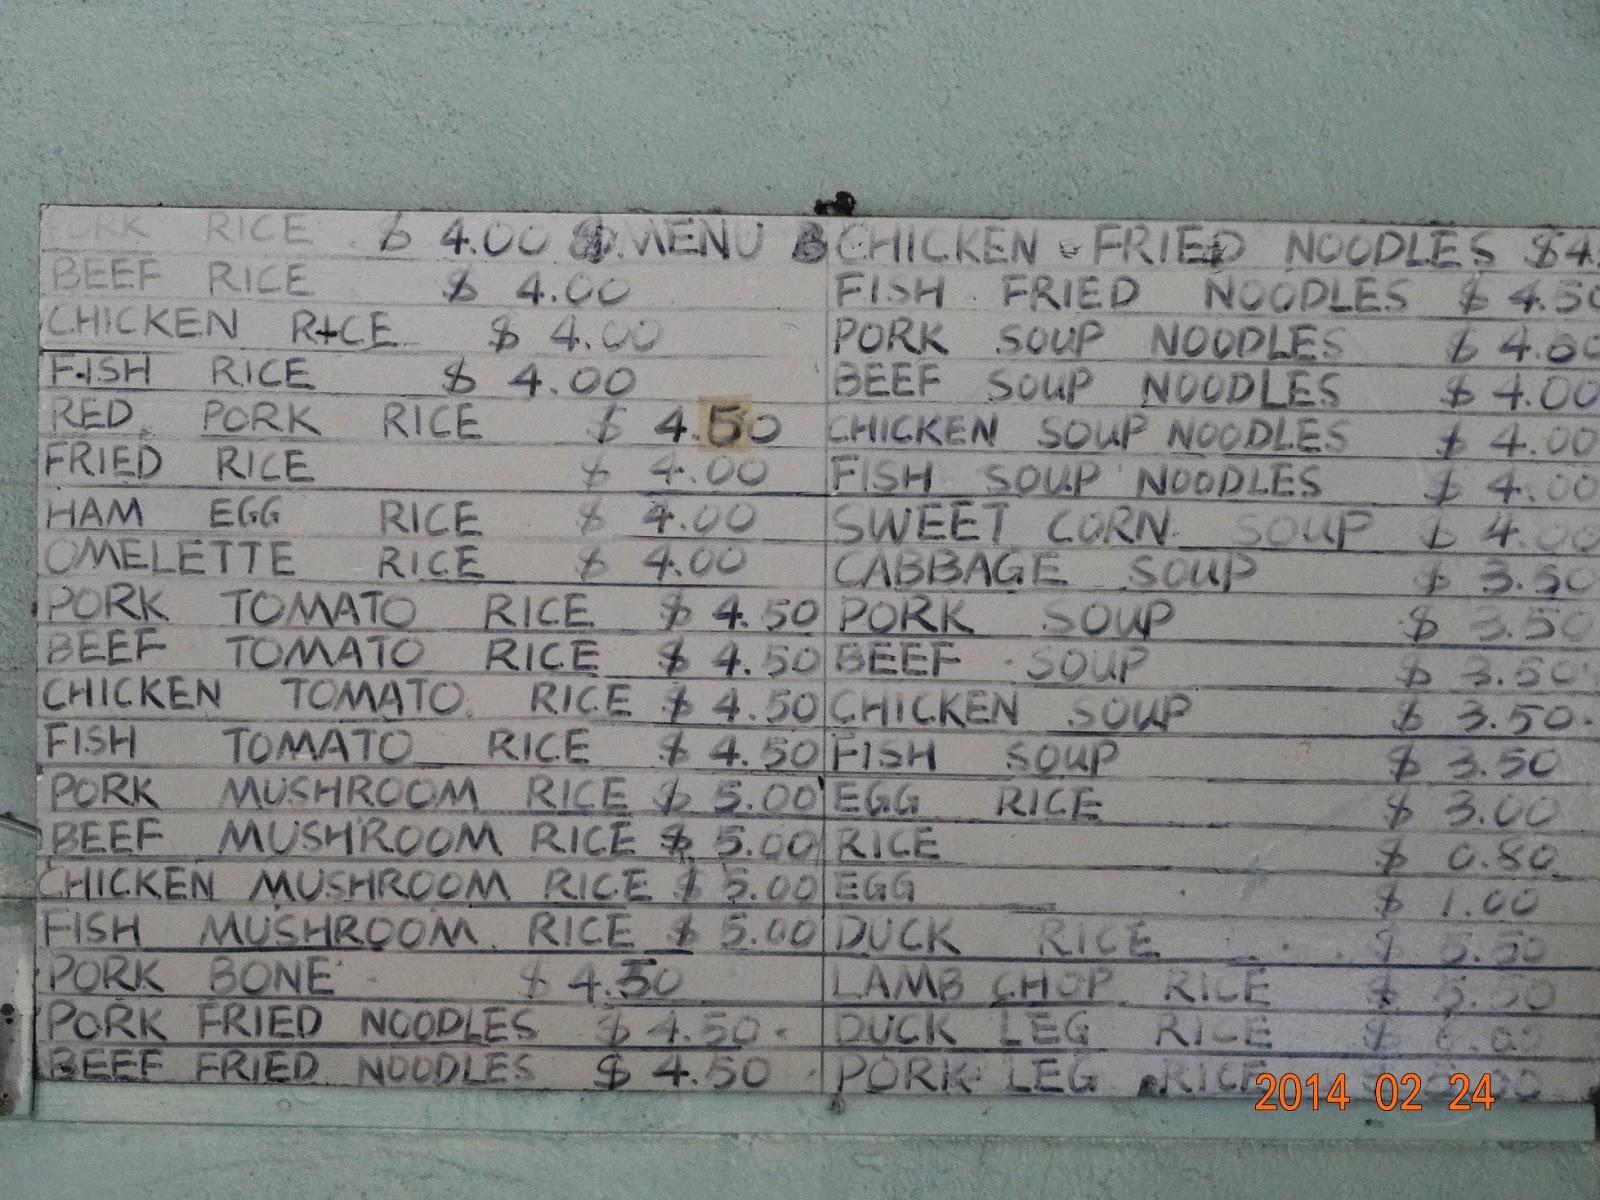 PORK RICE $ 4.00 MENU
BEEF RICE $ 4.00
CHICKEN RICE $ 4.00
FISH RICE $ 4.00
RED PORK RICE $ 4.50
FRIED RICE $ 4.00
HAM EGG RICE $ 4.00
OMELETTE RICE $ 4.00
PORK TOMATO RICE $ 4.50
BEEF TOMATO RICE $ 4.50
CHICKEN TOMATO RICE $ 4.50
FISH TOMATO RICE $ 4.50
PORK MUSHROOM RICE $ 5.00
BEEF MUSHROOM RICE $ 5.00
CHICKEN MUSHROOM RICE $ 5.00
FISH MUSHROOM RICE $ 5.00
PORK BONE $ 4.50
PORK FRIED NOODLES $ 4.50
BEEF FRIED NOODLES $ 4.50
CHICKEN FRIED NOODLES $4.
FISH FRIED NOODLES $ 4.50
PORK SOUP NOODLES $ 4.00
BEEF SOUP NOODLES $ 4.00
CHICKEN SOUP NOODLES $ 4.00
FISH SOUP NOODLES $ 4.00
SWEET CORN SOUP $ 4.00
CABBAGE SOUP $ 3.50
PORK SOUP $ 3.50
BEEF SOUP $ 3.50
CHICKEN SOUP $ 3.50
FISH SOUP $ 3.50
EGG RICE $ 3.00
RICE $ 0.80
EGG $ 1.00
DUCK RICE $ 5.50
LAMB CHOP RICE $ 5.50
DUCK LEG RICE $ 6.00
PORK LEG RICE
2014 02 24